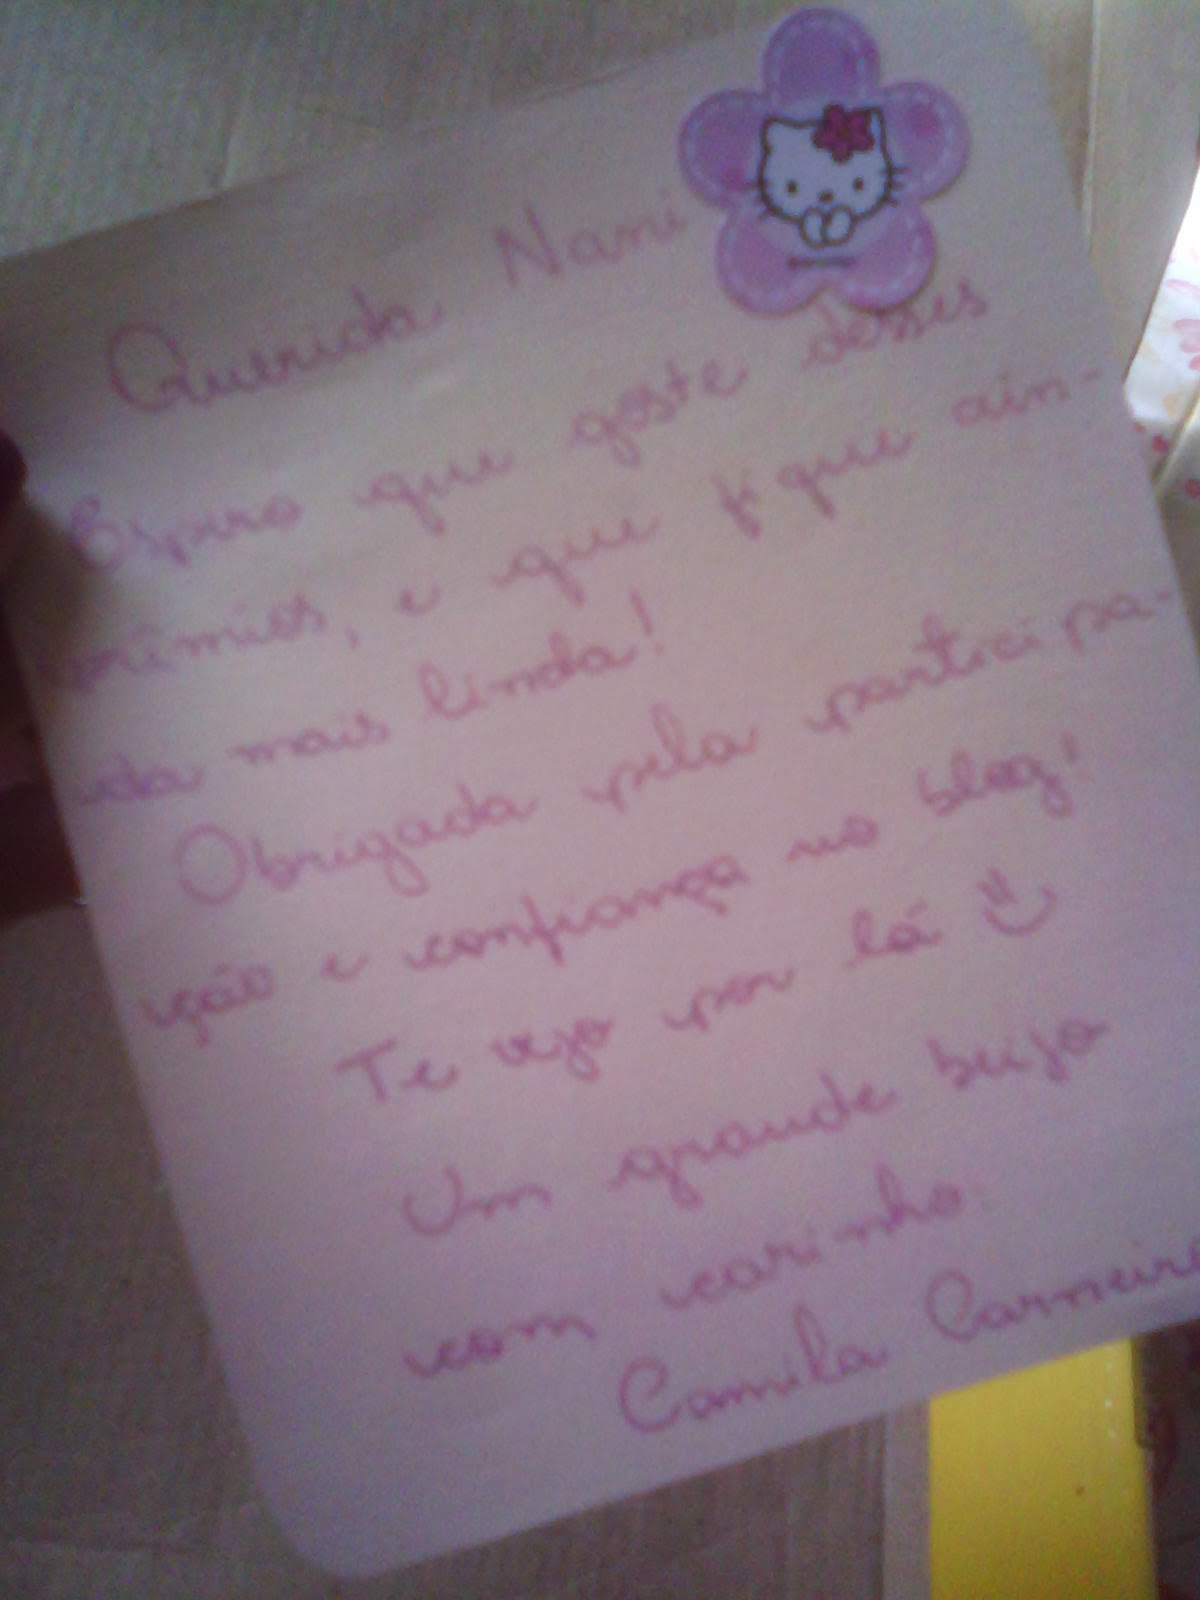 Querida Nami
Espero que goste desses
prêmios, e que fique ain-
da mais linda!
Obrigada pela participa-
ção e confiança no blog!
Te vejo por lá
Um grande beijo
com carinho.
Camila Carneiro